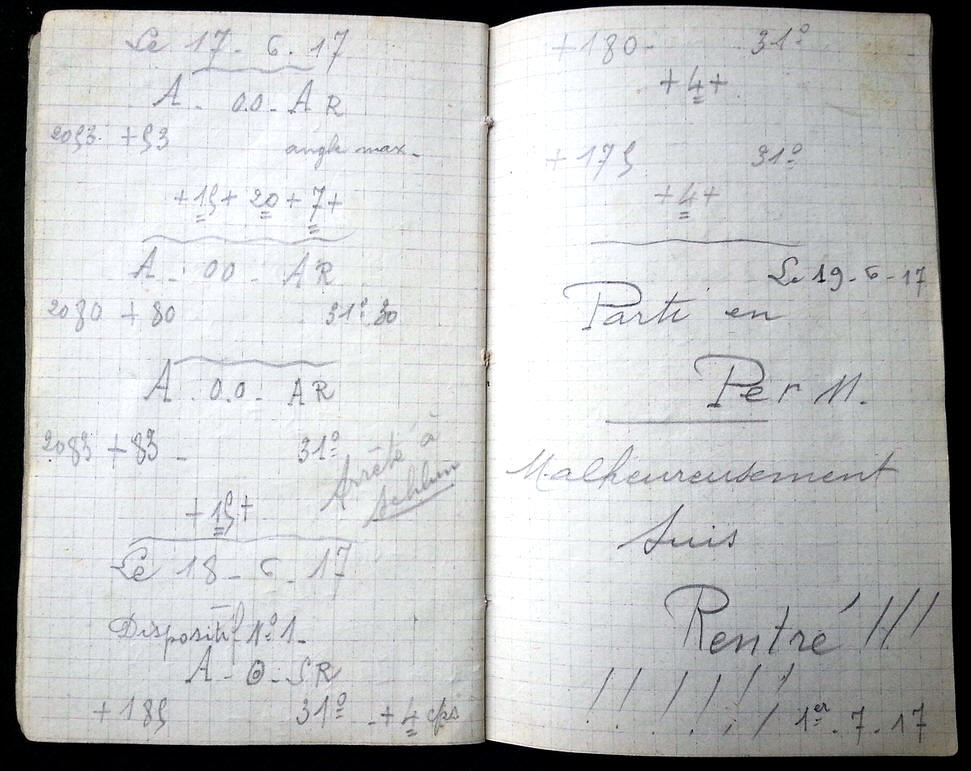 Le 17-6-17
A - 00 - AR
2053 +53 angle max -
+15+ 20 + 7+
A - 00 - AR
2080 +80 31°.30
A - 0.0 - AR
2083 +83 - 31°
Arrêté à
+15+
Le 18-6-17
Dispositif N° 1-
A - O - SR
+185 31° -+4 cps
+180- 31°
+4+
+175 31°
+4+
Le 19-6-17
Parti en
Perm.
Malheureusement
Suis
Rentré !!!
! ! ! ! ! ! 1er.7.17